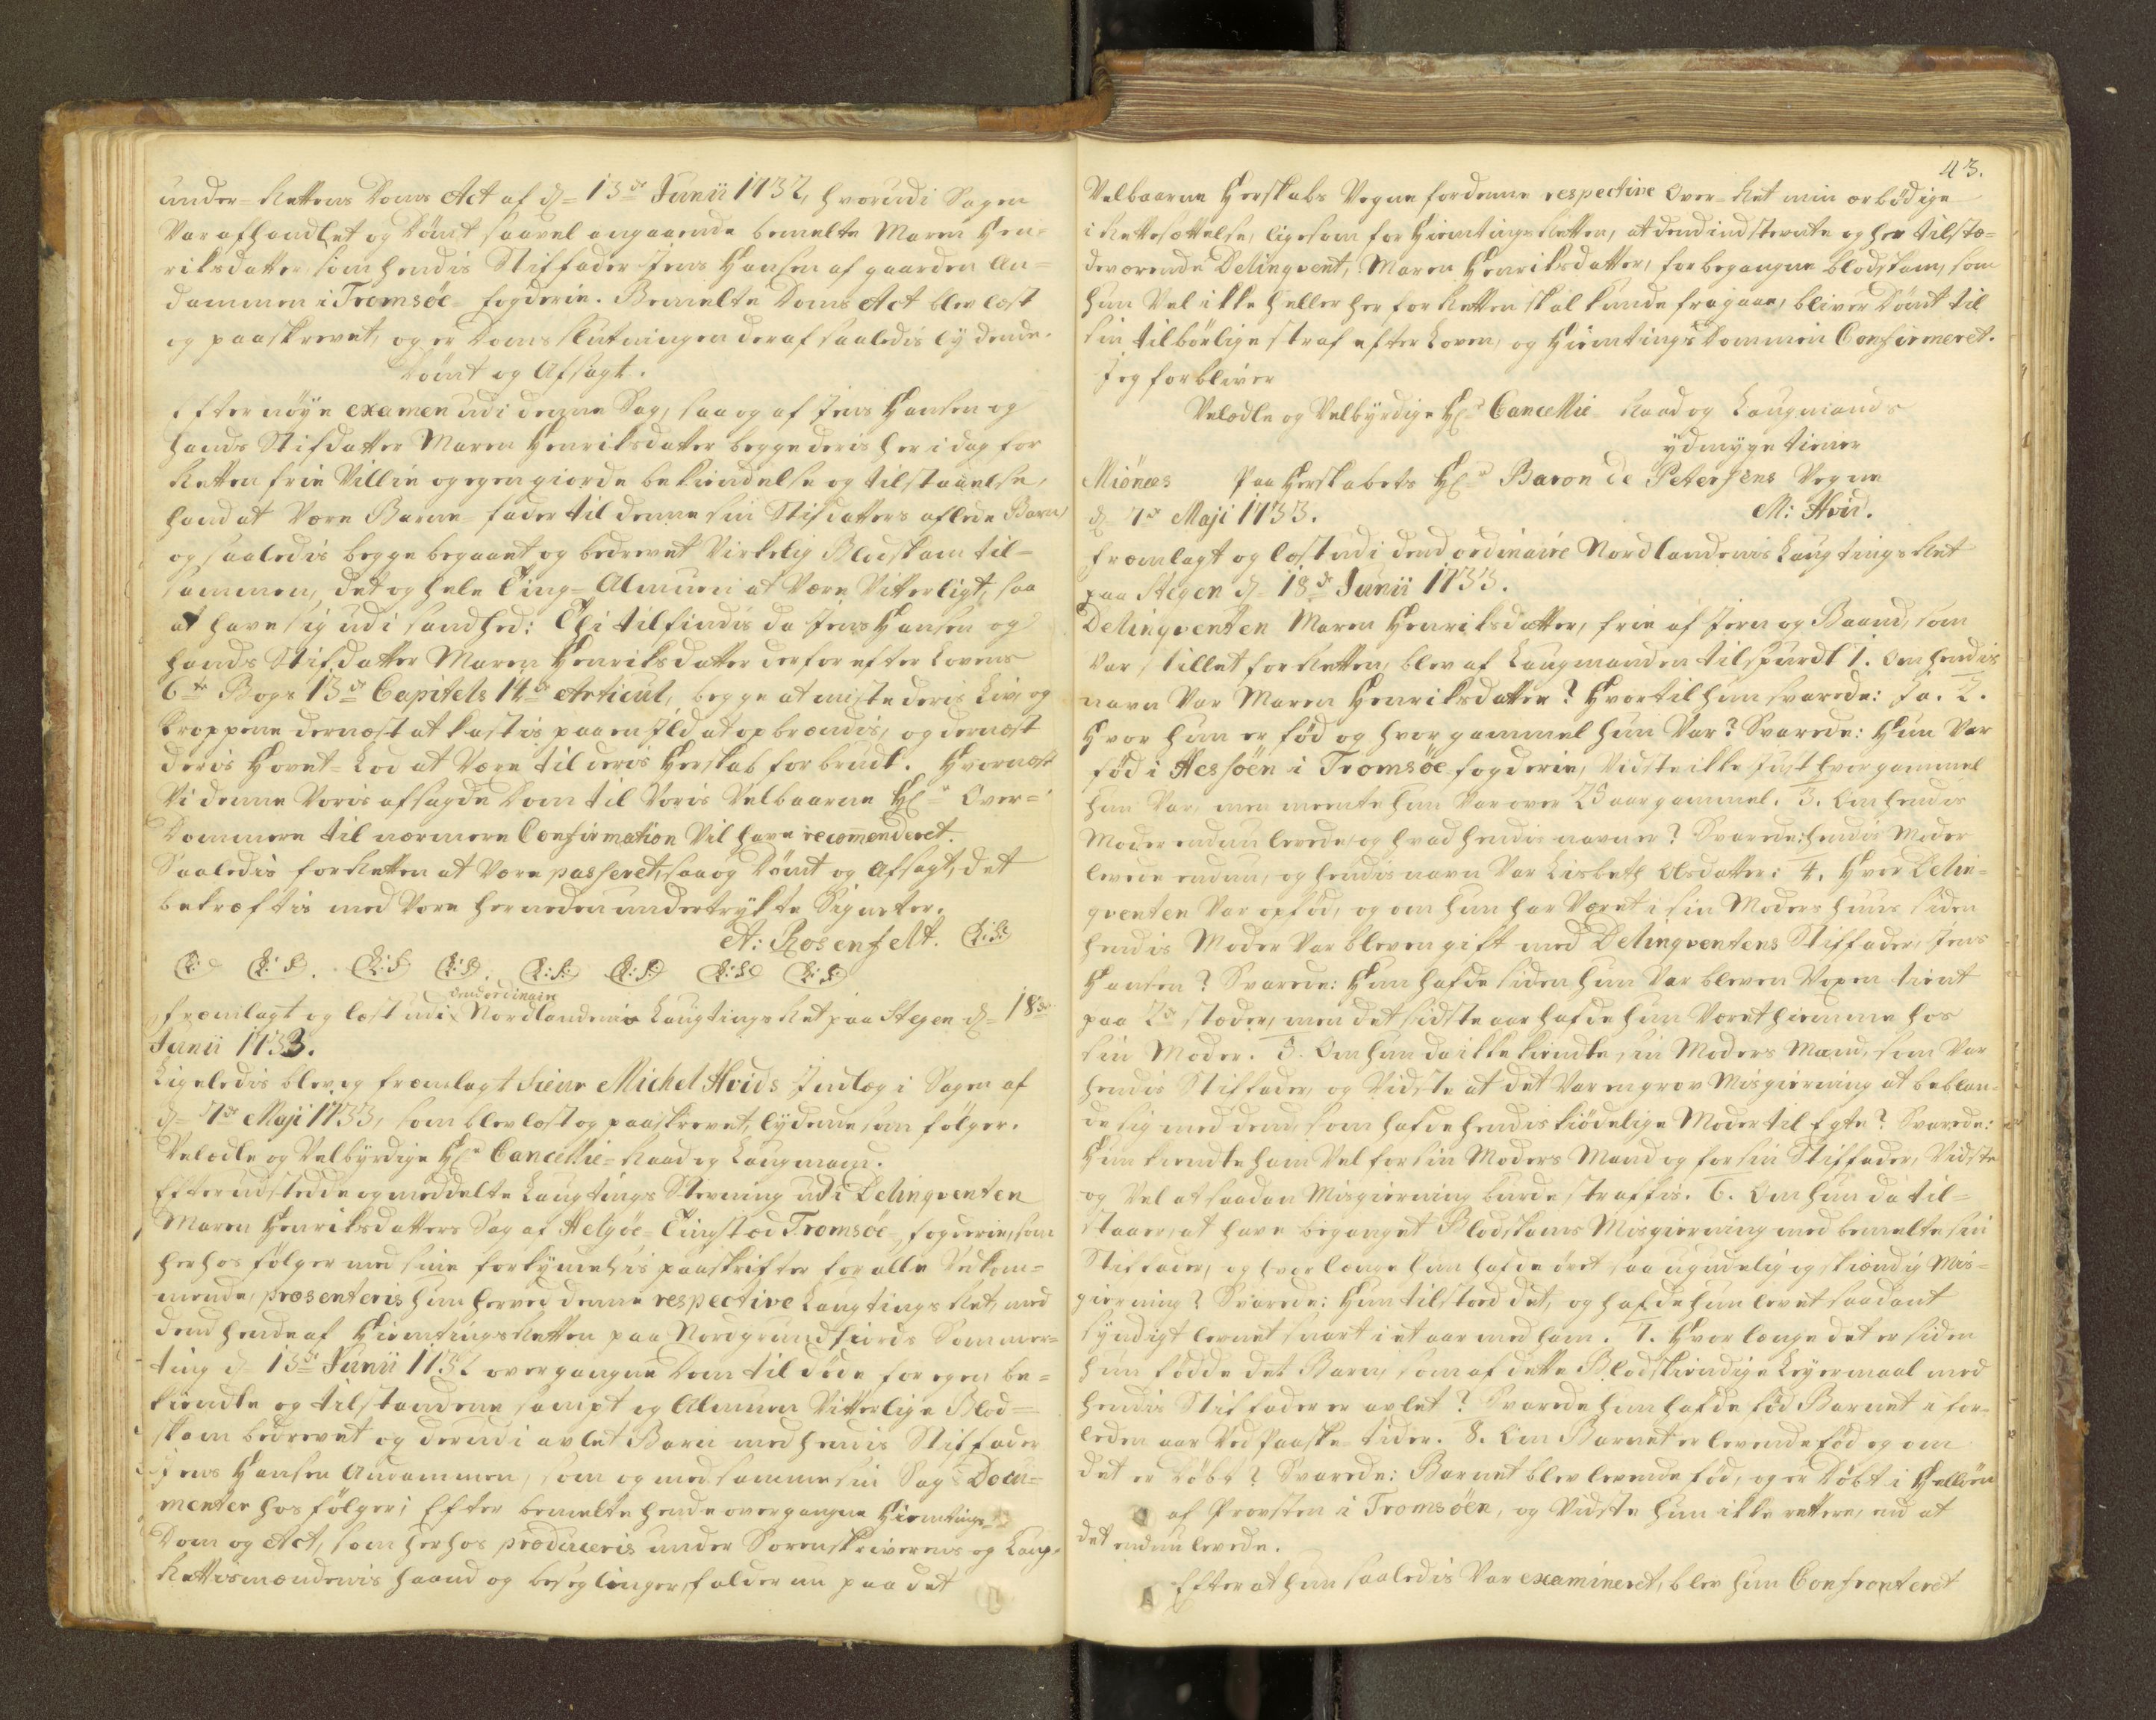 under-Rettens Doms Act af d= 13de Junii 1732, hvorudi Sagen
Var afhandlet og Dömt saavel angaaende bemelte Maren Hen-
riksdatter som hendis Stiffader Jens Hansen af gaarden An-
dammen i Tromsöe fogderie. Bemelte Doms Act blev læst
og paaskrevet, og er Doms slutningen deraf saaledis lydende.
Dömt og Afsagt.
Efter nöye examen udi denne Sag, saa og af Jens Hansen og
hands Stifdatter Maren Henriksdatter begge deris her i dag for
Retten frie Villie og egen giorde bekiendelse og tilstaaelse,
hand at Være Barne fader til denne sin Stifdatters aflede Barn,
og saaledis begge begaaet og bedrevet Virkelig Blodskam til-
sammen, det og hele Ting-Almuen at Være Vitterligt, saa
at have sig udi sandhed: Thi tilfindis da Jens Hansen og
hands Stifdatter Maren Henriksdatter derfor efter Lovens
6te Bogs 13de Capitels 14de Articul, begge at miste deris Liv, og
Kroppene dernæst at kastis paa en Jld at opbrændis, og dernæst
deris Hovet-Lod at Være til deris Herskab forbrudt. Hvornæst
Vi denne Voris afsagde Dom til Voris Velbaarne Hr Over-
Dommere til nærmere Confirmation Vil have recommenderet.
Saaledis for Retten at Vare passeret, saa og Dömt og Afsagt, det
bekræftis med Vore herneden undertrykte Signeter.
A: Rosenfelt. (L:S)
(L:S) (L:S). (L:S) (L:S). (L:S:) (L:S:) (L:S) (L:S:)
dend ordinaire
Fremlagt og læst udi Nordlandenis Laugtings Ret paa Stegen d= 18de
Junii 1733.
Ligeledis blev og fremlagt Sieur Michel Hvids Jndlæg i Sagen af
d= 7de Maji 1733, som blev læst og paaskrevet, lydende som fölger.
Velædle og Velbyrdige Hr Cancellie-Raad og Laugmand.
Efter udstedde og meddelte Laugtings Stevning udi Delinqventen
Maren Henriksdatters Sag af Helgöe-Tingsted Tromsöe fogderie, som
herhos fölger med sine forkyndelsis paaskrifter for alle Vedkom-
mende, præsenteris hun herved denne respective Laugtings Ret, med
dend hende af Hiemtings Retten paa Nordgrundfiords Sommer-
ting d 13de Junii 1732 overgangne Dom til döde for egen be-
kiendte og tilstandene sampt og Almuen Vitterlige Blod-
skam bedrevet og derudi avlet Barn med hendis Stiffader
Jens Hansen Andammen, som og med samme sin Sags Docu-
menter hos fölger; Efter bemelte hende overgangne Hiemtings-
Dom og Act, som herhos produceris under Sorenskriverens og Laug-
Rettesmændenis haand og beseglinger, falder nu paa det
43.
Velbaarne Herskabs Vegne for denne respective Over-Ret min ærbödige
i Rettesættelse, ligesom for Hiemtings Retten, at dend indstevnte og her tilstæ-
deværende Delinqvent, Maren Henriksdatter, for begangne blodskam, som
hun Vel ikke heller her for Retten skal kunde fragaae, bliver Dömt til
sin tilbörlige straf efter Loven, og Hiemtings Dommen Confirmeret.
Jeg forbliver
Velædle og Velbyrdige Hr Cancellie Raad og Laugmands
ydmyge tiener
Miönæs Paa Herskabets Hr Baron de Petersens Vegne
d 7de Maji 1733. M: Hvid.
Fremlagt og læst udi dend ordinaire Nordlandenis Laugtings Ret
paa Stegen d= 18de Junii 1733.
Delinqventen Maren Henriksdatter, frie af Jern og Baand, som
Var stillet for Retten, blev af Laugmanden tilspurdt 1. Om hendis
navn Var Maren Henriksdatter? Hvortil hun svarede: Ja. 2.
Hvor hun er föd og hvor gammel hun Var? Svarede: Hun Var
föd i Hessöen i Tromsöe fogderie, Vidste ikke just hvor gammel
hun Var, men meente hun Var over 20 aar gammel. 3. Om hendis
Moder endnu levede, og hvad hendis navn er? Svarede: hendis Moder
levede endnu, og hendis navn Var Lisbeth Olsdatter. 4. Hvor Delin-
qventen Var opföd, og om hun har Været i sin Moders huus siden
hendis Moder Var bleven gift med Delinqventens Stiffader Jens
Hansen? Svarede: Hun hafde siden hun Var bleven Voxen tient
paa 2de stæder, men det sidste aar hafde hun Været hiemme hos
sin Moder. 5. Om hun da ikke kiendte sin Moders Mand, som Var
hendis Stiffader, og Vidste at det Var en grov Misgierning at beblan-
de sig med dend, som hafde hendis kiödelige Moder til Egte? Svarede:
Hun kiendte ham Vel for sin Moders Mand og for sin Stiffader, Vidste
og Vel at saadan Misgierning burde straffis. 6. Om hun da til-
staaer, at have beganget Blodskams Misgierning med bemelte sin
Stiffader, og hvor længe hun hafde övet saa ugudelig og skiændig Mis-
gierning? Svarede: Hun tilstoed det, og hafde hun levet saadant
syndigt levnet snart i et aar med ham. 7. Hvor længe det er siden
hun födde det Barn, som af dette Blodskiendige Leyermaal med
hendis Stiffader er avlet? Svarede hun hafde föd Barnet i for-
leden aar Ved Paaske tider. 8. Om Barnet er levende föd og om
det er Döbt? Svarede: Barnet blev levende föd, og er Döbt i Helleöen
af Provsten i Tromsöen, og Vidste hun ikke rettere, end at
det endnu levede.
Efter at hun saaledis Var examineret, blev hun Confronteret